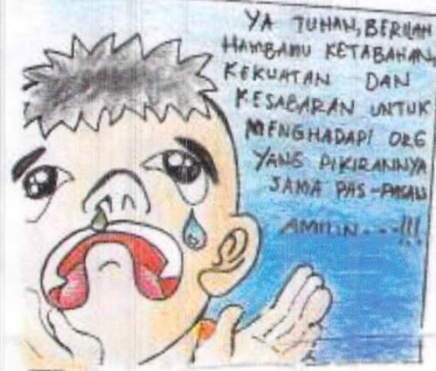 YA TUHAN, BERILAH
HAMBAMU KETABAHAN,
KEKUATAN DAN
KESABARAN UNTUK
MENGHADAPI ORG
YANG PIKIRANNYA
SAMA
AMIIIN...!!!